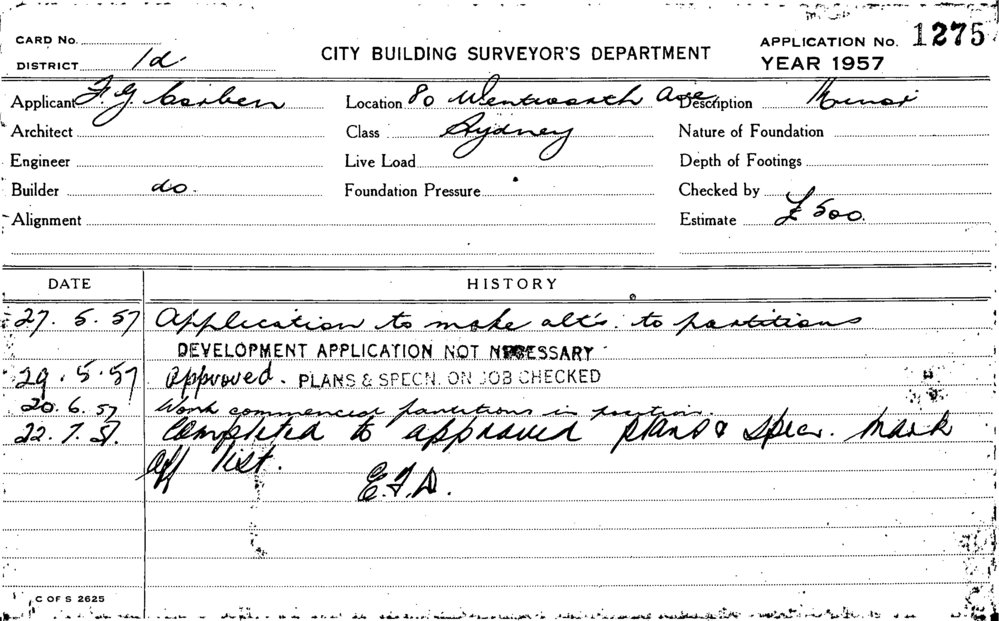 CARD No.
DISTRICT 1d.
CITY BUILDING SURVEYOR'S DEPARTMENT
APPLICATION No. 1275
YEAR 1957
Applicant F G Corben
Location 80 Wentworth Ave
Description Minor
Architect
Class Sydney
Nature of Foundation
Engineer
Live Load
Depth of Footings
Builder do.
Foundation Pressure
Checked by
Alignment
Estimate £500.
DATE
HISTORY
27. 5. 57 Application to make alt's. to partitions
DEVELOPMENT APPLICATION NOT NECESSARY
29. 5. 57 Approved. PLANS & SPECN. ON JOB CHECKED
20. 6. 57 Work commenced partitions in position.
22. 7. 57. Completed to approved plans & specn. Mark
off list.
E.F.D.
C OF S 2625